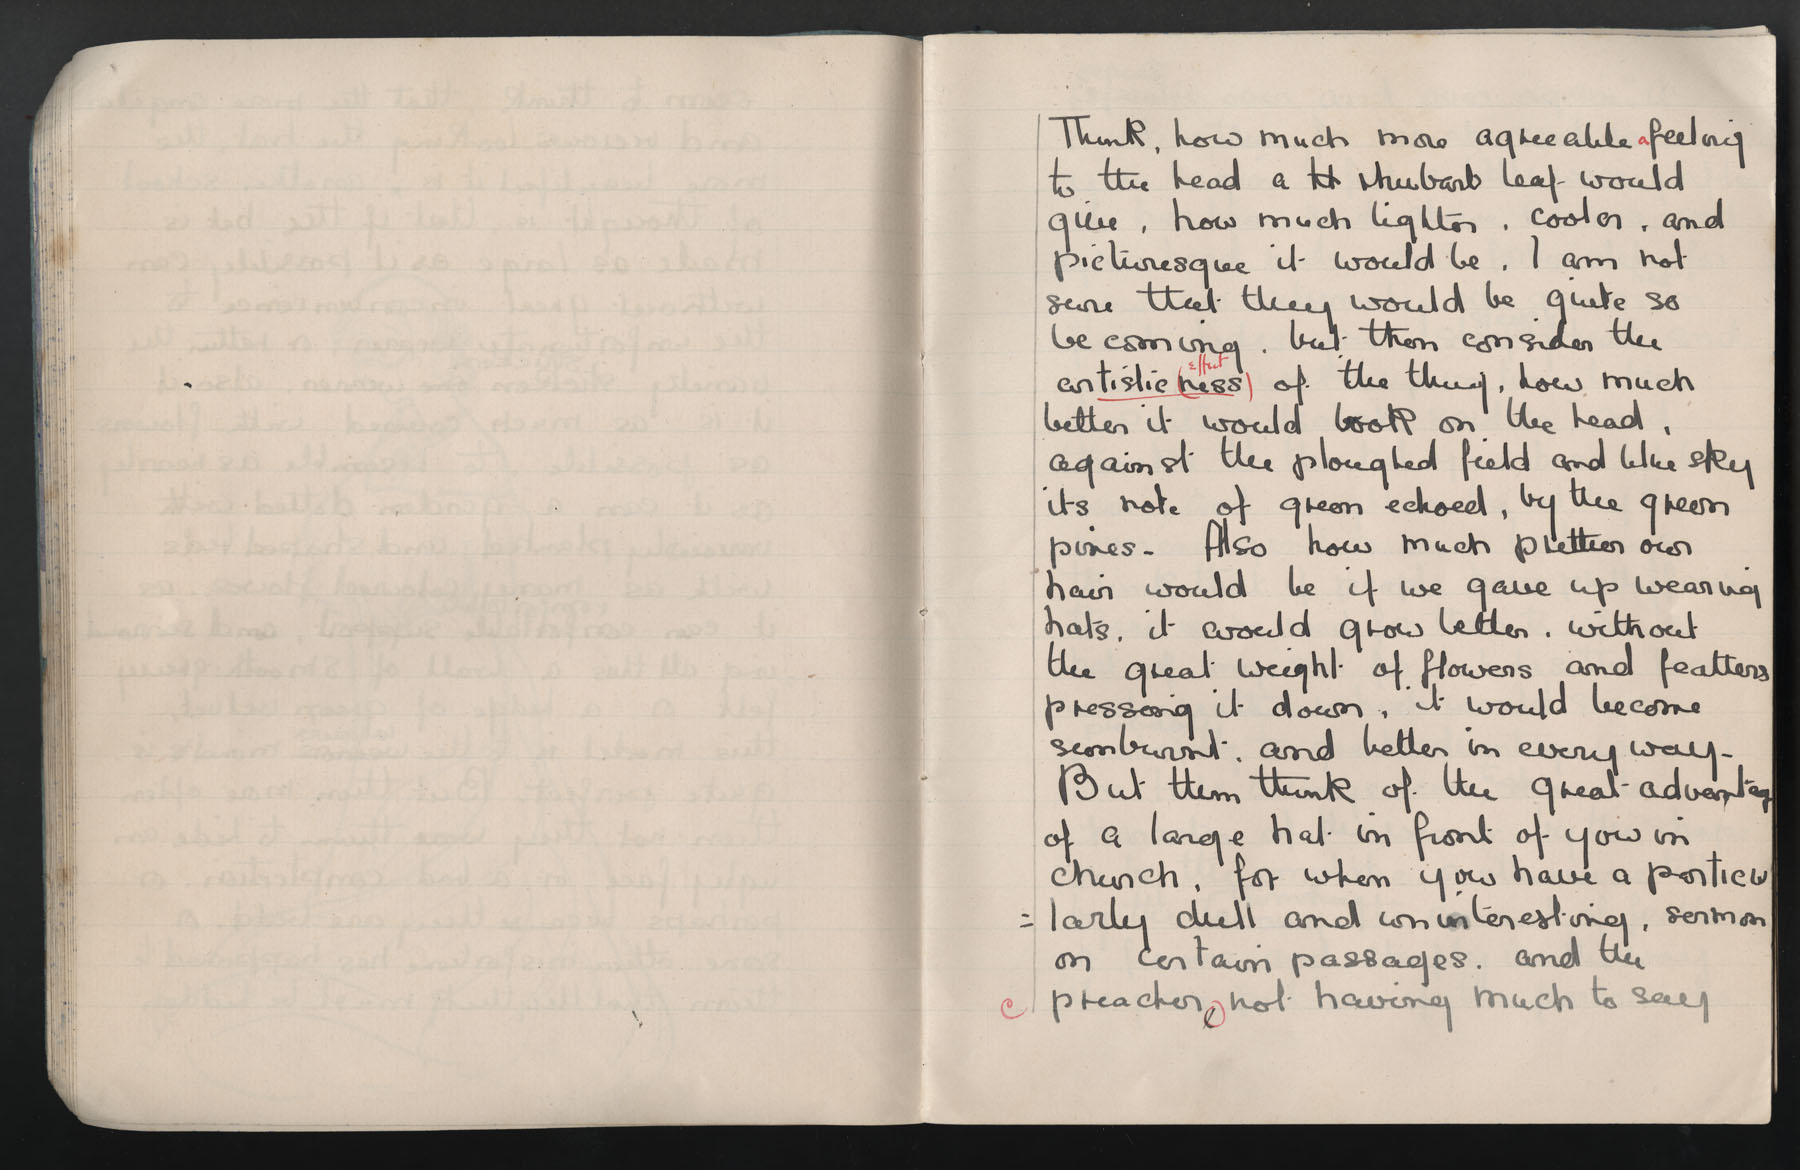 Think, how much more agreeable a feeling
to the head a rhubarb leaf would
give, how much lighter, cooler, and
picturesque it would be. I am not
sure that they would be quite so
becoming. but then consider the
effect
artistic(ness) of the thing, how much
better it would look on the head,
against the ploughed field and blue sky
its note of green echoed, by the green
pines- Also how much prettier our
hair would be if we gave up wearing
hats, it would grow better. without
the great weight of flowers and feathers
pressing it down, it would become
sunburnt. and better in every way-
But then think of the great advantag
of a large hat in front of you in
church, for when you have a particu
=larly dull and uninteresting, sermon
on certain passages. and the
c preacher, not having much to say